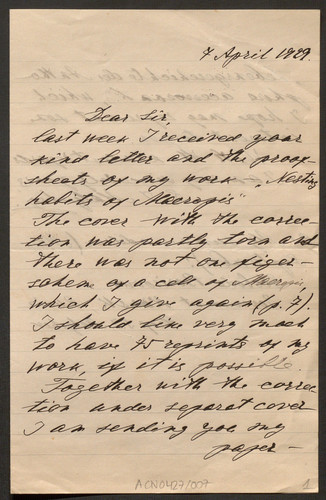 7 April 1929.
Dear Sir,
last week I received your
kind letter and the proof-
sheets of my work „Nesting
habits of Macropis"
The cover with the correc-
tion was partly torn and
there was not one figer-
schem of a cell of Macropis,
which I give again (p. 7).
I should like very much
to have 75 reprints of my
work, if it is possible.
Together with the correc-
tion under separat cover
I am sending you my
paper –
ACN0427/007
1